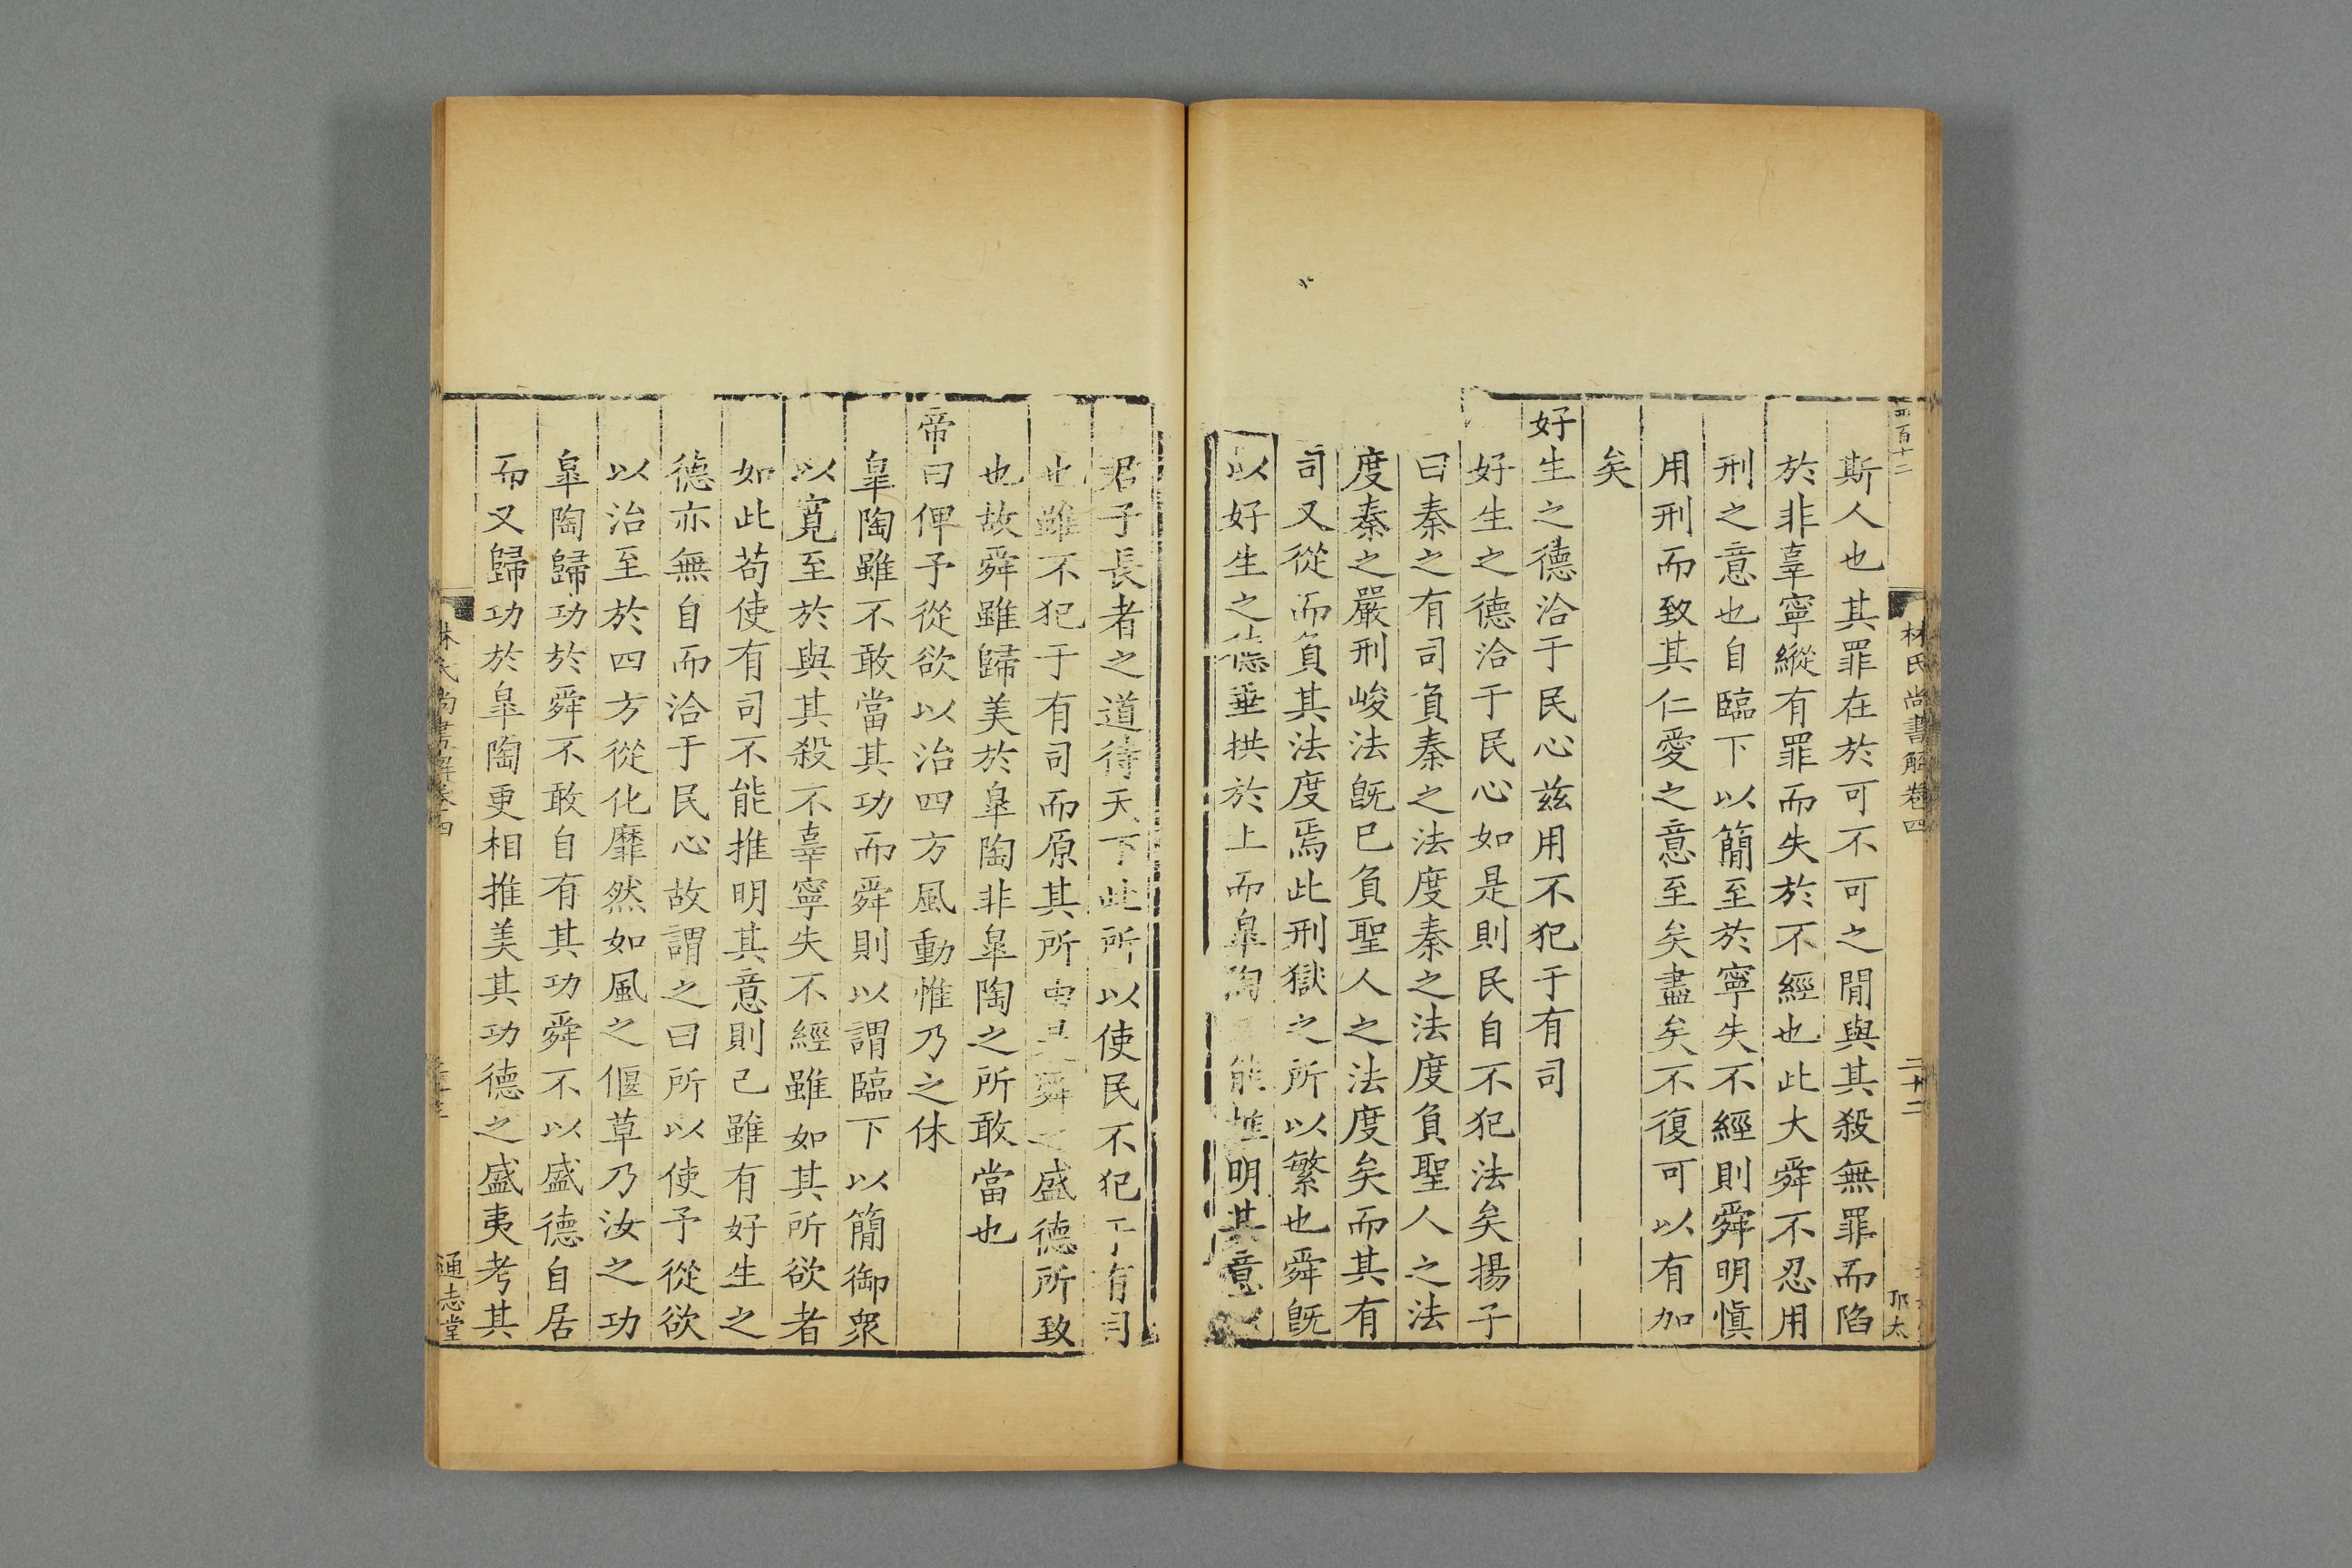 四百十二
林氏尚書解卷四
二十二
邡太
斯人也其罪在於可不可之閒與其殺無罪而陷
於非辜寧縱有罪而失於不經也此大舜不忍用
刑之意也自臨下以簡至於寧失不經則舜明愼
用刑而致其仁愛之意至矣盡矣不復可以有加
矣
好生之德洽于民心茲用不犯于有司
好生之德洽于民心如是則民自不犯法矣揚子
曰秦之有司負秦之法度秦之法度負聖人之法
度秦之嚴刑峻法旣已負聖人之法度矣而其有
司又從而負其法度焉此刑獄之所以繁也舜旣
以好生之德垂拱於上而臯陶能推明其意以
君子長者之道待天下此所以使民不犯于有司
也雖不犯于有司而原其所由舜之盛德所致
也故舜雖歸美於臯陶非臯陶之所敢當也
帝曰俾予從欲以治四方風動惟乃之休
臯陶雖不敢當其功而舜則以謂臨下以簡御衆
以寬至於與其殺不辜寧失不經雖如其所欲者
如此苟使有司不能推明其意則己雖有好生之
德亦無自而洽于民心故謂之曰所以使予從欲
以治至於四方從化靡然如風之偃草乃汝之功
臯陶歸功於舜不敢自有其功舜不以盛德自居
而又歸功於臯陶更相推美其功德之盛夷考其
林氏尚書解卷四
通志堂